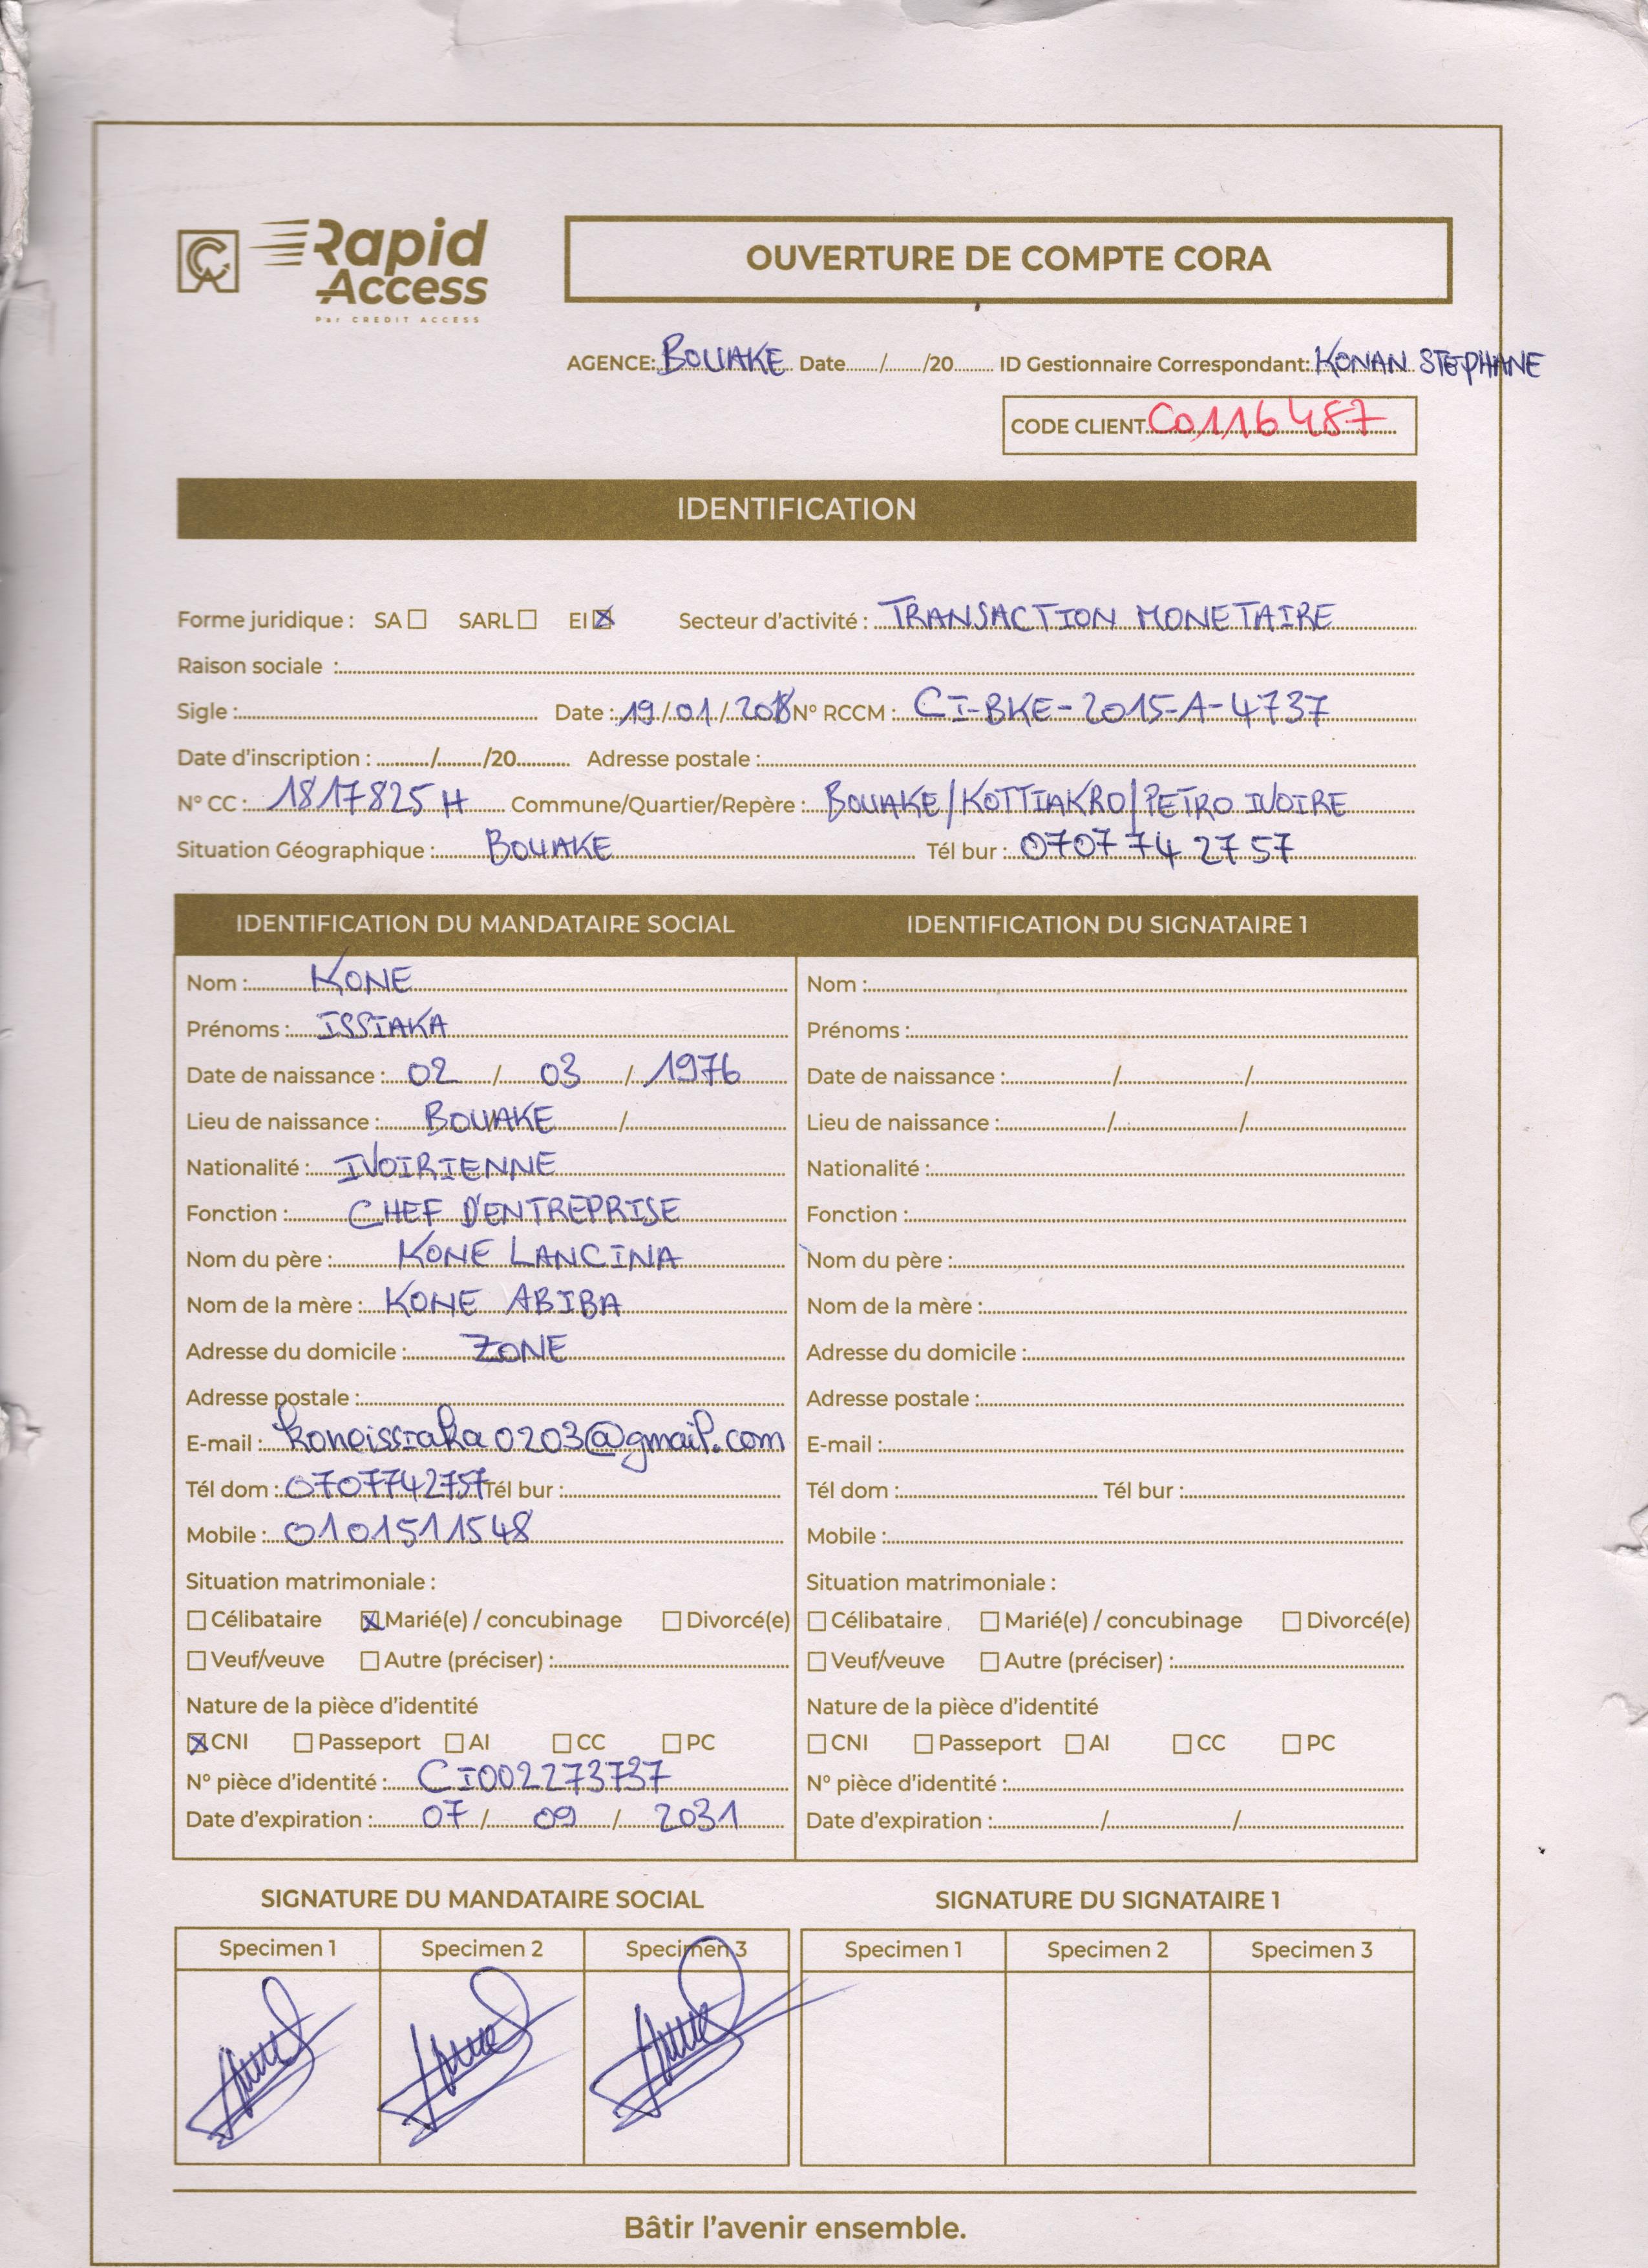 CA Rapid Access
Par CREDIT ACCESS
OUVERTURE DE COMPTE CORA
AGENCE: BOUAKE Date....../....../20...... ID Gestionnaire Correspondant: KONAN STEPHANE
CODE CLIENT C0116487
IDENTIFICATION
Forme juridique : SA ☐ SARL ☐ EI ☒ Secteur d'activité : TRANSACTION MONETAIRE
Raison sociale :
Sigle : Date : 19/01/2018 N° RCCM : CI-BKE-2015-A-4737
Date d'inscription : ....../....../20...... Adresse postale :
N° CC : 1817825 H Commune/Quartier/Repère : BOUAKE/KOTTIAKRO/PETRO IVOIRE
Situation Géographique : BOUAKE Tél bur : 0707 74 27 57
IDENTIFICATION DU MANDATAIRE SOCIAL IDENTIFICATION DU SIGNATAIRE 1
Nom : KONE Nom :
Prénoms : ISSIAKA Prénoms :
Date de naissance : 02 / 03 / 1976 Date de naissance : / /
Lieu de naissance : BOUAKE / Lieu de naissance : / /
Nationalité : IVOIRIENNE Nationalité :
Fonction : CHEF D'ENTREPRISE Fonction :
Nom du père : KONE LANCINA Nom du père :
Nom de la mère : KONE ABIBA Nom de la mère :
Adresse du domicile : ZONE Adresse du domicile :
Adresse postale : Adresse postale :
E-mail : koneissiaka0203@gmail.com E-mail :
Tél dom : 0707742757 Tél bur : Tél dom : Tél bur :
Mobile : 0101511548 Mobile :
Situation matrimoniale : Situation matrimoniale :
☐ Célibataire ☒ Marié(e) / concubinage ☐ Divorcé(e) ☐ Célibataire ☐ Marié(e) / concubinage ☐ Divorcé(e)
☐ Veuf/veuve ☐ Autre (préciser) : ☐ Veuf/veuve ☐ Autre (préciser) :
Nature de la pièce d'identité Nature de la pièce d'identité
☒ CNI ☐ Passeport ☐ AI ☐ CC ☐ PC ☐ CNI ☐ Passeport ☐ AI ☐ CC ☐ PC
N° pièce d'identité : CI002273737 N° pièce d'identité :
Date d'expiration : 07 / 09 / 2031 Date d'expiration : / /
SIGNATURE DU MANDATAIRE SOCIAL SIGNATURE DU SIGNATAIRE 1
Specimen 1 Specimen 2 Specimen 3 Specimen 1 Specimen 2 Specimen 3
Bâtir l'avenir ensemble.